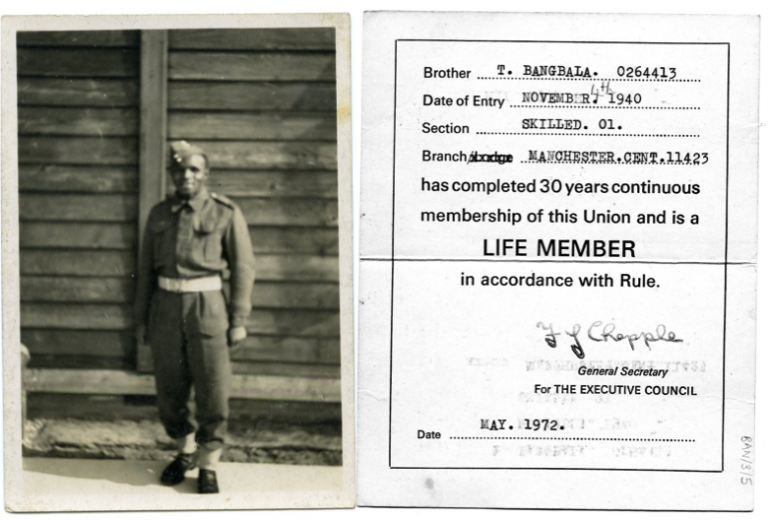 Brother T. BANGBALA. 0264413
4th
Date of Entry NOVEMBER. 1940
Section SKILLED. 01.
Branch/lodge MANCHESTER.CENT.11423
has completed 30 years continuous
membership of this Union and is a
LIFE MEMBER
in accordance with Rule.
F J Chapple
General Secretary
For THE EXECUTIVE COUNCIL
Date MAY. 1972.
BAN/3/5